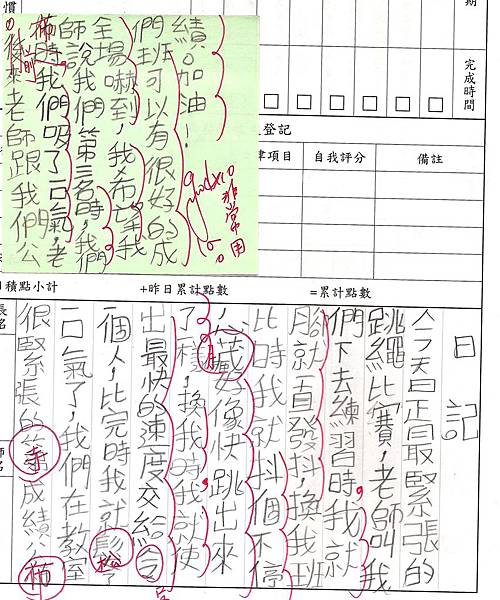 慣
期
完成時間
登記
項目
自我評分
備註
積點小計
+昨日累計點數
=累計點數
日記
今天是最緊張的
跳繩比賽,老師叫我
們下去練習時,我就
就直發抖,換我班
比時我就抖個不停
好像快跳出來
了樣,換我時我就使
出最快的速度交給
一個人,比完時我就鬆了
一口氣了,我們在教室
很緊張的等成績公佈
後來老師跟我們公
佈時我們吸了一口氣,老
師說我們第三名時,我們
全場嚇到,我希望我
們班可以有很好的成
績。加油!
非常用